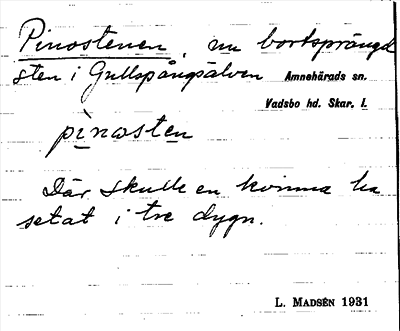 Pinostenen, nu bortsprängd
sten i Gullspångsälven Amnehärads sn.
Vadsbo hd. Skar. l.
pinosten
Där skulle en kvinna ha
setat i tre dygn.
L. MADSÉN 1931